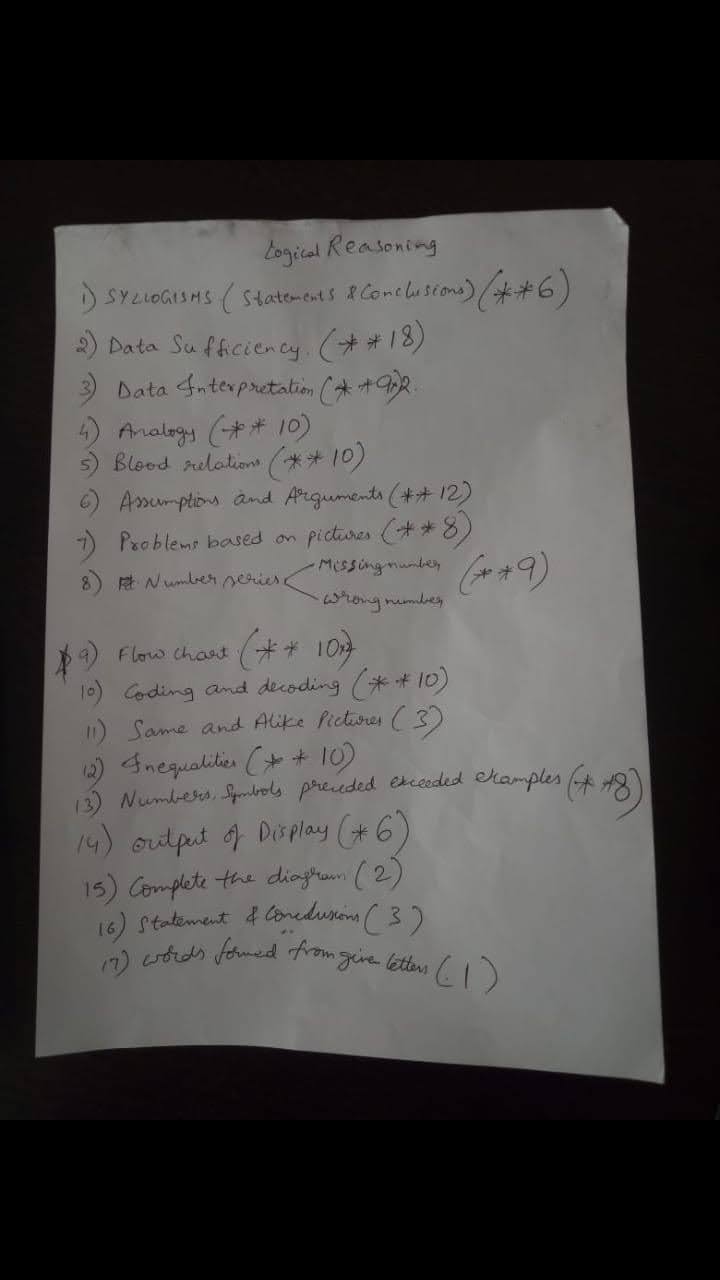 Logical Reasoning
1) SYLLOGISMS ( Statements & Conclusions) (**6)
2) Data Sufficiency. (**18)
3) Data Interpretation (**9x2.
4) Analogy (** 10)
5) Blood relations (**10)
6) Assumptions and Arguments (**12)
7) Problems based on pictures (**8)
8) Number series Missing number (**9)
Wrong number
9) Flow chart (** 10x2)
10) Coding and decoding (**10)
11) Same and Alike Pictures (3)
12) Inequalities (**10)
13) Numbers, Symbols preceded exceeded examples (**8)
14) output of Display (*6)
15) Complete the diagram (2)
16) Statement & Conclusions (3)
17) words formed from given letters (.1)